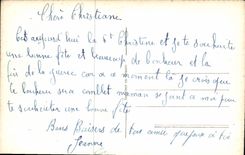 Chère Christiane
C'est aujourd'hui la Ste Christine et je te souhaite
une bonne fête et beaucoup de bonheur et la
fin de la guerre car a ce moment là je crois que
le bonheur sera complet maman se joint a moi pour
te souhaiter une bonne fête
Bons Baisers de ton amie
Jeanne